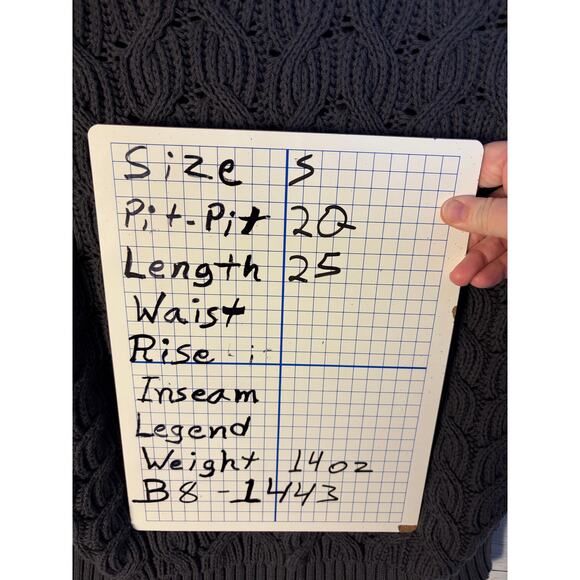 Size S
Pit-Pit 20
Length 25
Waist
Rise
Inseam
Legend
Weight 14oz
B8-1443